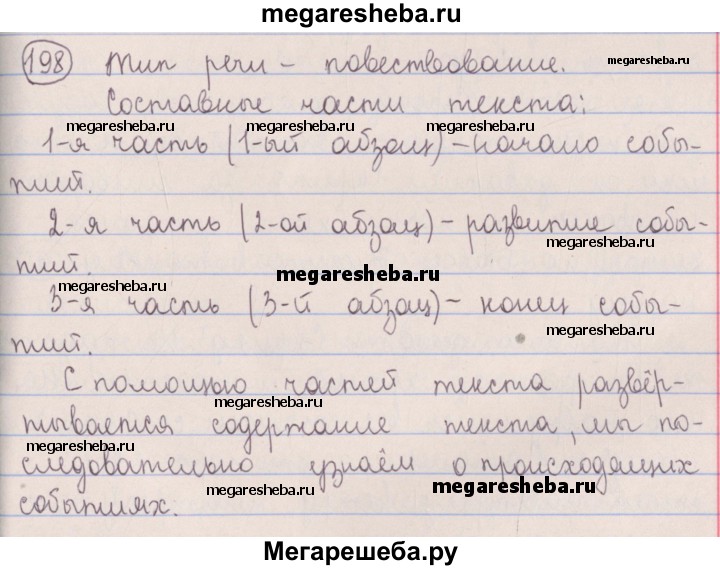 megaresheba.ru
198 Тип речи - повествование.
megaresheba.ru
Составные части текста:
megaresheba.ru megaresheba.ru megaresheba.ru
1-я часть (1-ый абзац) - начало собы-
тий.
2-я часть (2-ой абзац) - развитие собы-
megaresheba.ru
тий.
megaresheba.ru megaresheba.ru
3-я часть (3-й абзац) - конец собы-
megaresheba.ru
тий.
С помощью частей текста развёр-
megaresheba.ru
тывается содержание текста, мы по-
megaresheba.ru
следовательно узнаём о происходящих
megaresheba.ru megaresheba.ru
событиях.
megaresheba.ru
Мегарешеба.ру